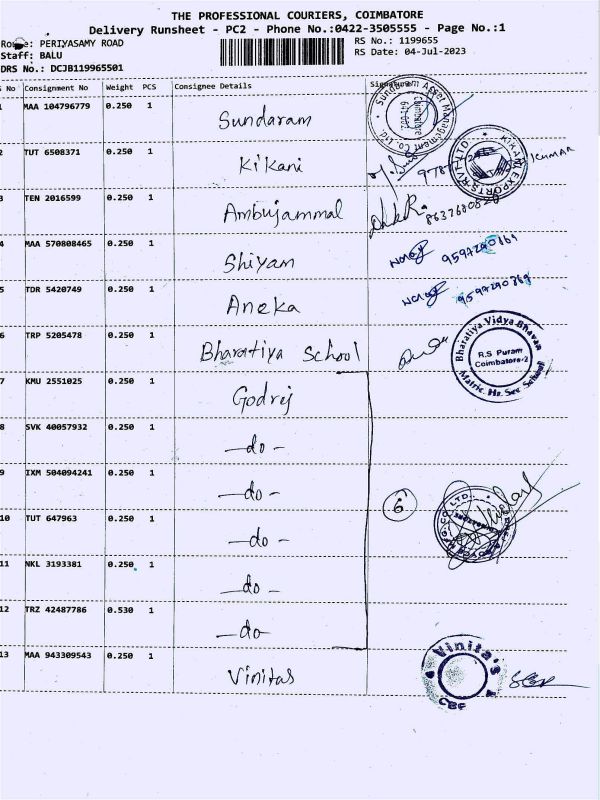 THE PROFESSIONAL COURIERS, COIMBATORE
Delivery Runsheet - PC2 - Phone No.:0422-3505555 - Page No.:1
Route: PERIYASAMY ROAD RS No.: 1199655
Staff: BALU RS Date: 04-Jul-2023
DRS No.: DCJB119965501
No Consignment No Weight PCS Consignee Details
MAA 104796779 0.250 1 Sundaram
Sundaram Asset Management Co. Ltd. Coimbatore
2 TUT 6508371 0.250 1 Kikani
KIKANI EXPORTS PVT LTD KUMAR
3 TEN 2016599 0.250 1 Ambujammal
4 MAA 570808465 0.250 1 Shiyam 9597290869
5 TDR 5420749 0.250 1 Aneka 9597290869
6 TRP 5205478 0.250 1 Bharatiya School
Bharatiya Vidya Bhavan
R.S Puram
Coimbatore-2
Matric. Hr. Sec School
7 KMU 2551025 0.250 1 Godrej
8 SVK 40057932 0.250 1 -do-
9 IXM 504094241 0.250 1 -do-
10 TUT 647963 0.250 1 -do-
6
11 NKL 3193381 0.250 1 -do-
12 TRZ 42487786 0.530 1 -do-
13 MAA 943309543 0.250 1 Vinitas
Vinita's
CBE